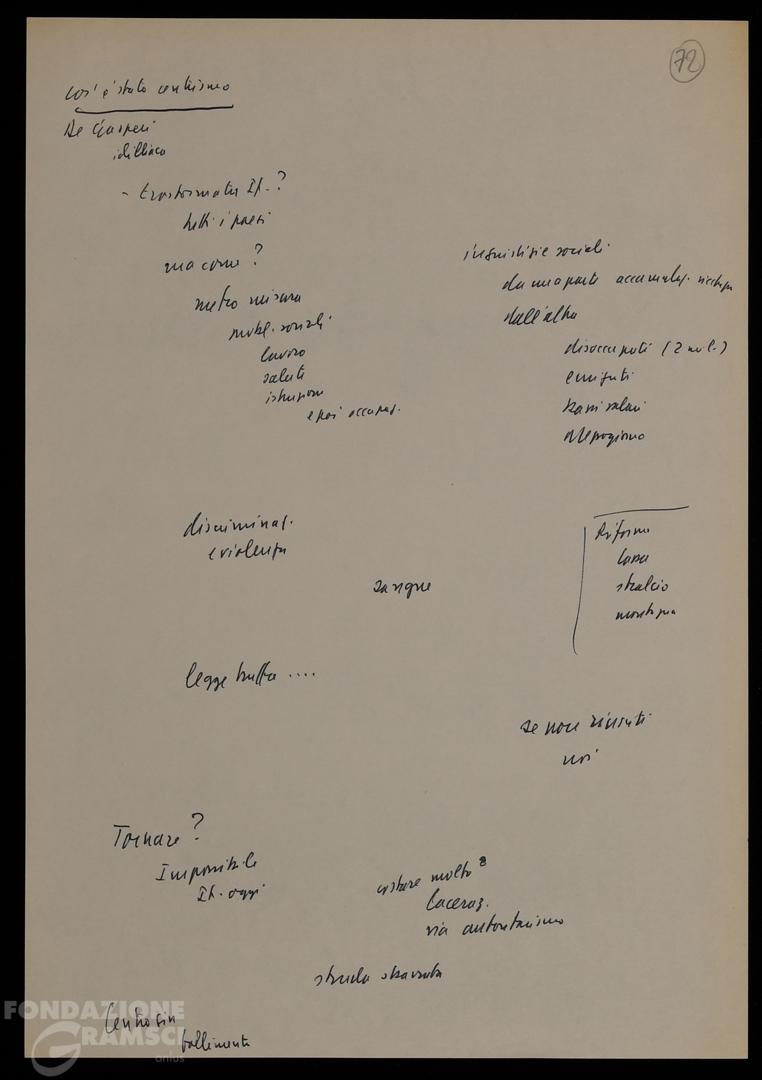 72
Cos' è stato centrismo
De Gasperi
idilliaco
- trasformata It. ?
tutti i paesi
ma come ?
metro misura
probl. sociali
lavoro
salute
istruzione
e poi occupaz.
ingiustizie sociali
da una parte accumulaz. ricchezza
dall'altra
disoccupati (2 mil.)
emigrati
bassi salari
discriminaz.
e violenza
sangue
Riforme
Cassa
stralcio
montagna
legge truffa ....
se non riusciti
noi
Tornare ?
Impossibile
It. oggi
costare molto
laceraz.
via autoritarismo
strada sbarrata
FONDAZIONE
GRAMSCI
onlus
Centrosin
fallimento